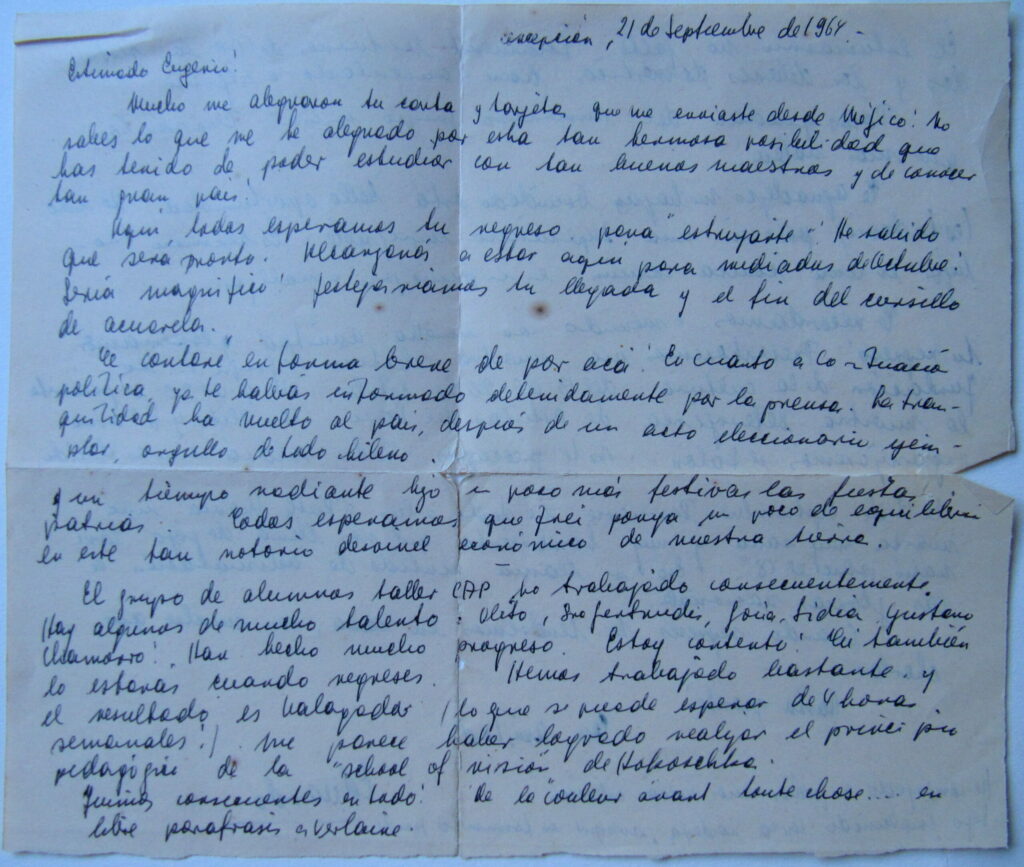 Concepción, 21 de Septiembre de 1964.-
Estimado Eugenio!
Mucho me alegraron tu carta y tarjeta que me enviaste desde Méjico! No
sabes lo que me he alegrado por esta tan hermosa posibilidad que
has tenido de poder estudiar con tan buenos maestros y de conocer
tan gran país.
Aquí todos esperamos tu regreso para "estrujarte"! He sabido
que será pronto. Alcanzarás a estar aquí para mediados de Octubre!
Sería magnífico! festejaríamos tu llegada y el fin del cursillo
de acuarela.
Te contaré en forma breve de por acá! En cuanto a
política, ya te habrás informado debidamente por la prensa. La tran-
quilidad ha vuelto al país, después de un acto eleccionario ejem-
plar, orgullo de todo chileno.
y un tiempo radiante hizo un poco más festivas las fiestas
patrias. Todos esperamos que Frei ponga un poco de equilibrio
en este tan notorio desnivel económico de nuestra tierra.
El grupo de alumnos taller CAP ha trabajado consecuentemente.
Hay algunos de mucho talento: Sidia, Gustavo
Chamorro! Han hecho mucho progreso. Estoy contento! Tú también
lo estarás cuando regreses. Hemos trabajado bastante y
el resultado es halagador (lo que se puede esperar de 4 horas
semanales!) me parece haber logrado realizar el principio
pedagógico de la "school of vision" de Kokoschka.
Fuimos consecuentes en todo! "De la couleur avant toute chose.... en
libre paráfrasis a Verlaine.